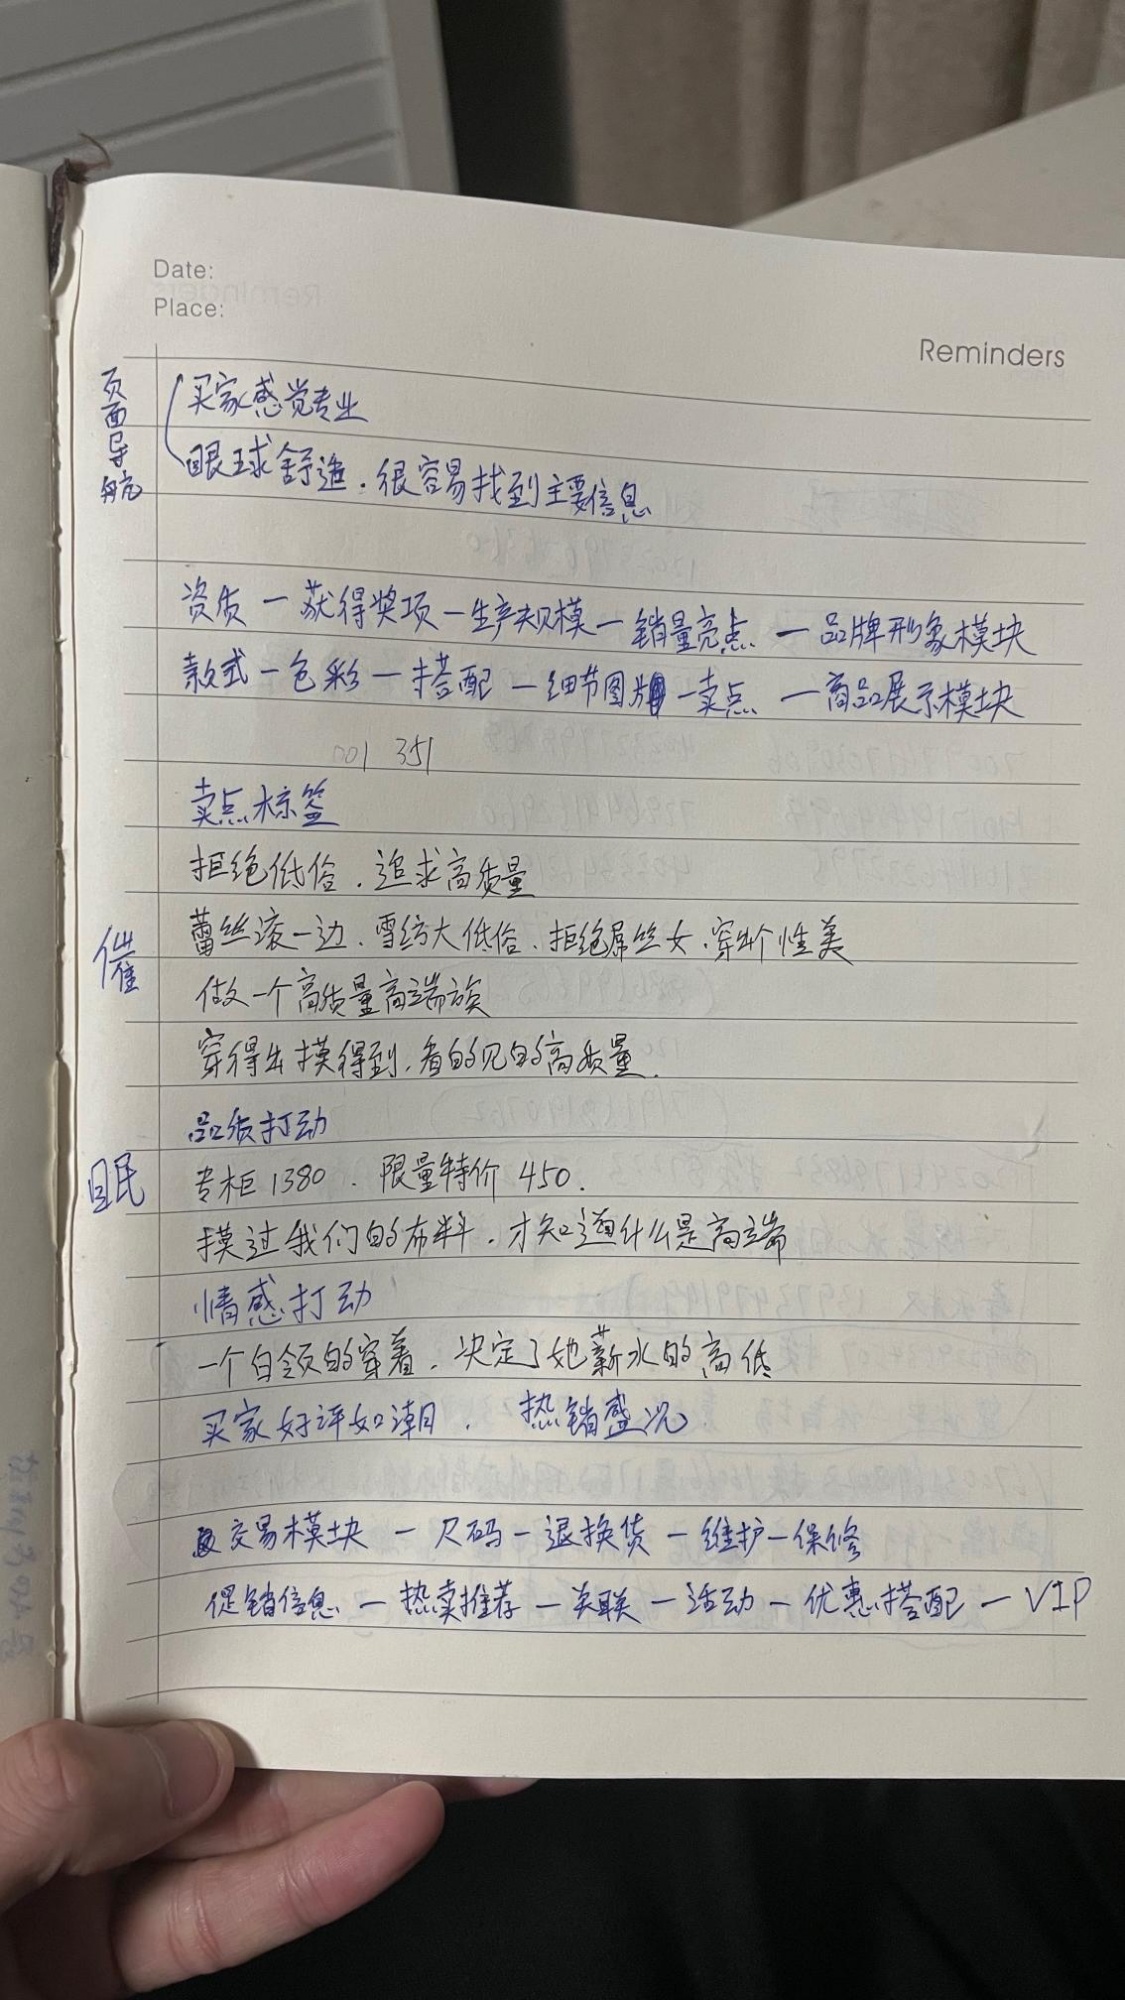 Date:
Place:
Reminders
页面导航
买家感觉专业
眼球舒适.很容易找到主要信息
资质—获得奖项—生产规模—销量亮点—品牌形象模块
款式—色彩—搭配—细节图—卖点—商品展示模块
001 351
卖点标签
拒绝低俗.追求高质量
催眠
蕾丝滚一边.雪纺大低俗.拒绝屌丝女.穿出个性美
做一个高质量高端族
穿得出摸得到.看的见的高质量.
品质打动
专柜1380.限量特价450.
摸过我们的布料.才知道什么是高端
情感打动
一个白领的穿着.决定了她薪水的高低
买家好评如潮.热销盛况
交易模块—尺码—退换货—维护—保修
促销信息—热卖推荐—关联—活动—优惠搭配—VIP